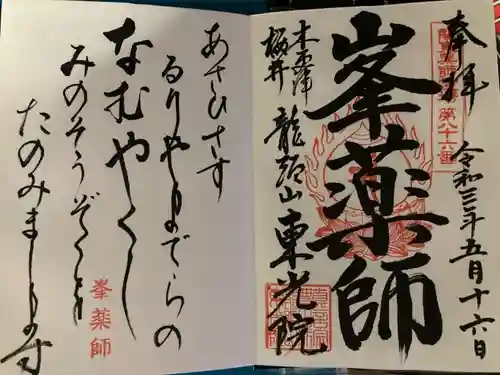 奉拝
第八十六番
令和三年五月十六日
峯薬師
木更津
桜井
龍頭山 東光院
あさひさす
るりやまでらの
なむやくし
みのそうぞく
たのみまします
峯薬師